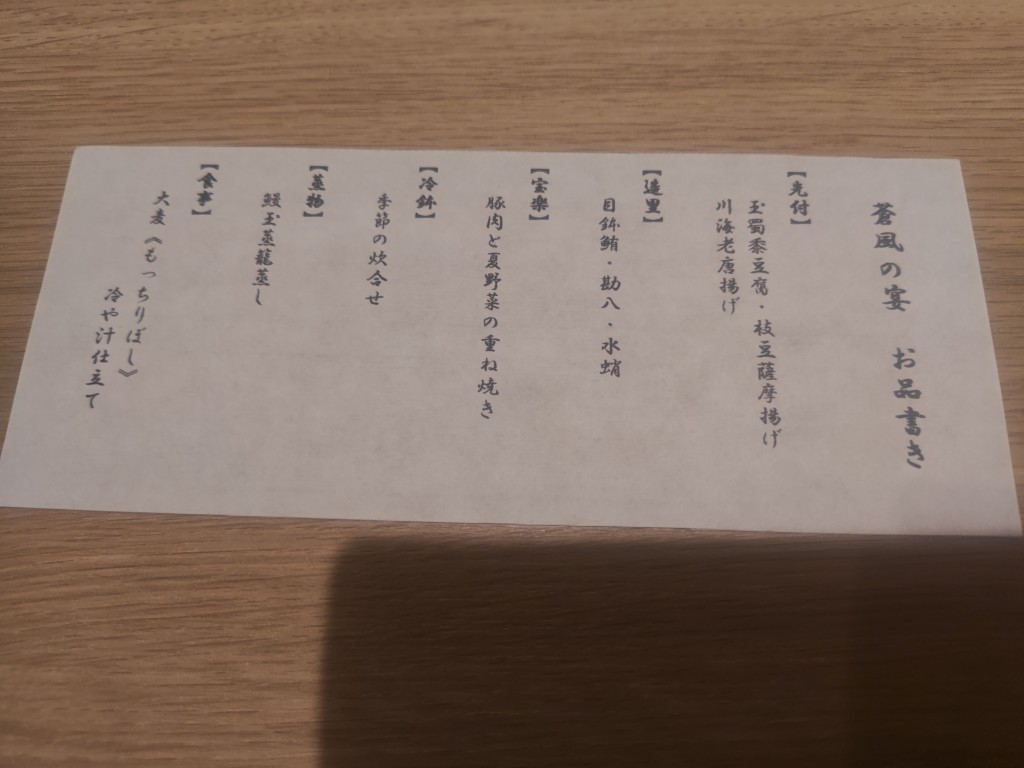 蒼風の宴　お品書き
【先付】
玉蜀黍豆腐・枝豆薩摩揚げ
川海老唐揚げ
【造里】
目鉢鮪・勘八・水蛸
【宝楽】
豚肉と夏野菜の重ね焼き
【冷鉢】
季節の炊合せ
【蒸物】
鰻玉蒸籠蒸し
【食事】
大麦《もっちりぼし》
冷や汁仕立て